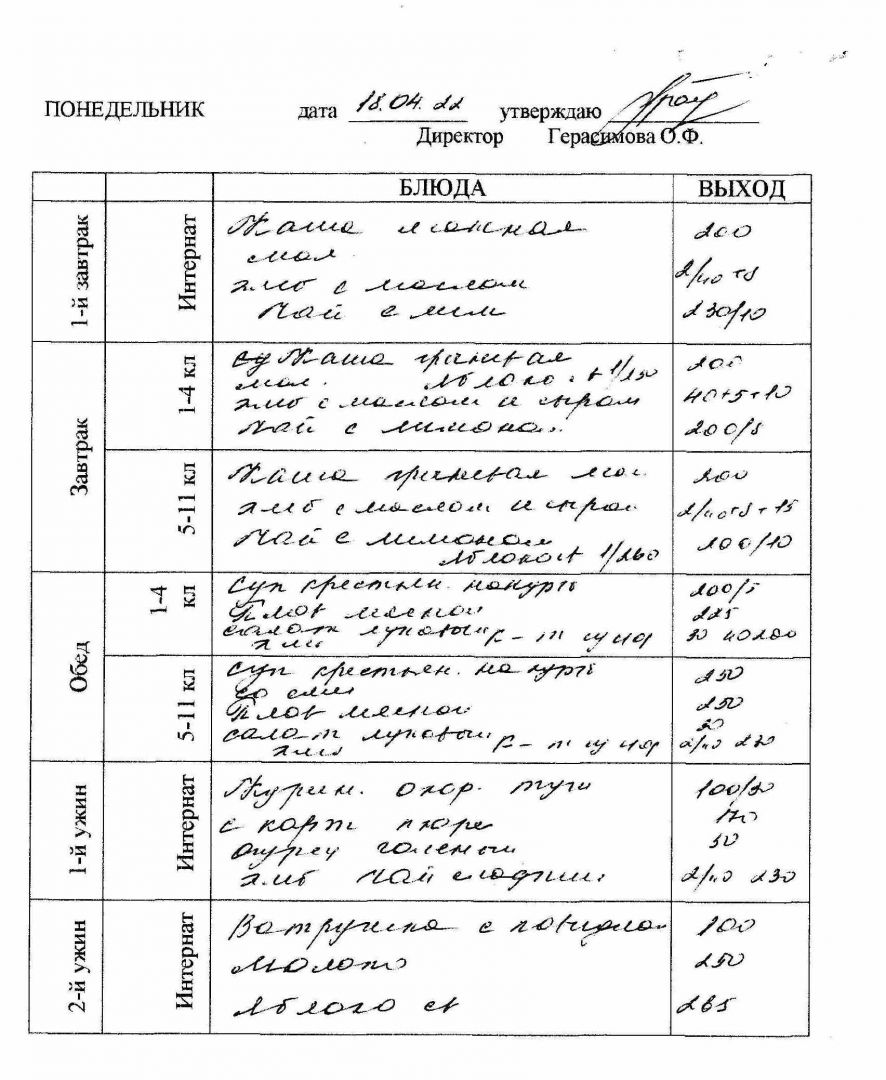 ПОНЕДЕЛЬНИК дата 18.04.22 утверждаю
Директор Герасимова О.Ф.
БЛЮДА ВЫХОД
1-й завтрак Интернат
Каша манная 200
мол
хлеб с маслом 2/40+5
Чай с лим 230/10
Завтрак
1-4 кл
Каша гречневая 200
мол. Яблоко св 1/150
хлеб с маслом и сыром 40+5+10
Чай с лимоном 200/5
5-11 кл
Каша гречневая мол 200
хлеб с маслом и сыром 2/40+5+15
Чай с лимоном 200/10
Яблоко св 1/260
Обед
1-4 кл
Суп крестьян. на курб 200/5
Плов мясной 225
салат луковый 30 40 200
хлеб к-т цитр
5-11 кл
Суп крестьян. на курб 250
со см
Плов мясной 250
салат луковый 30
хлеб к-т цитр 2/40 230
1-й ужин Интернат
Курин. окор. туш 100/30
с карт пюре 170
огурец соленый 50
хлеб Чай сладкий 2/40 230
2-й ужин Интернат
Ватрушка с повидлом 100
Молоко 250
Яблоко св 265